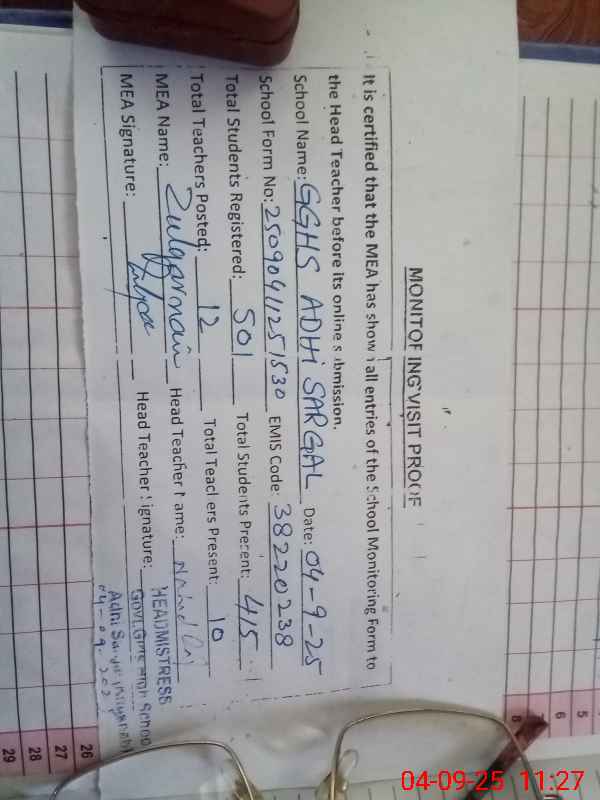 MONITORING VISIT PROOF
It is certified that the MEA has shown all entries of the School Monitoring Form to
the Head Teacher before its online submission.
School Name: GGHS ADHI SARGAL Date: 04-9-25
School Form No: 25090411251530 EMIS Code: 38220238
Total Students Registered: 501 Total Students Present: 415
Total Teachers Posted: 12 Total Teachers Present: 10
MEA Name: Zulqarnain Head Teacher Name:
MEA Signature: Head Teacher Signature:
HEADMISTRESS
Govt. Girls High School
Adhi
04-09-202
5
6
8
26
27
28
29
04-09-25 11:27